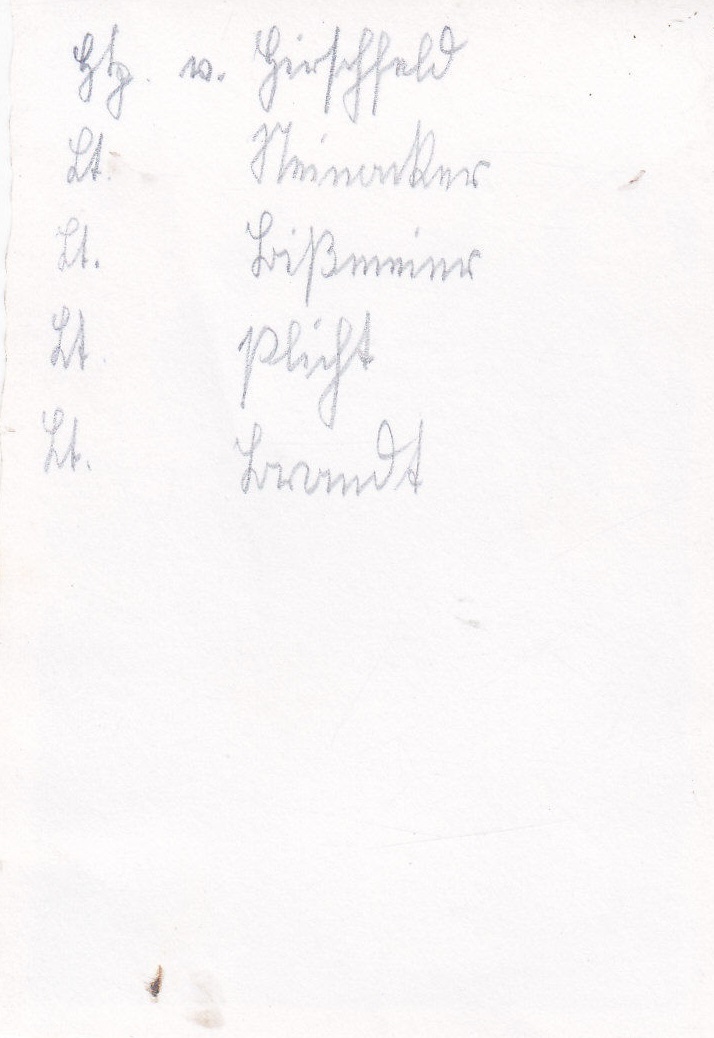 Hptm. v. Hirschfeld
Lt. Steinacker
Lt. Bißmeier
Lt. Plicht
Lt. Brandt